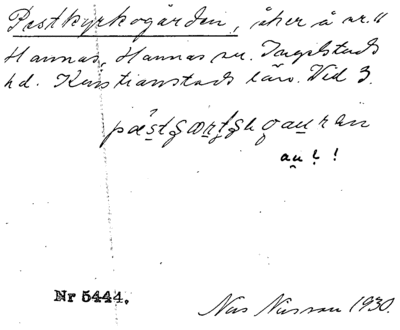 Pestkyrkogården, åker å nr. 11
Hannas, Hannas sn. Ingelstads
hd. Kristianstads län. Vid 3.
au ! !
Nr 5444.
Nils Nilsson 1930.